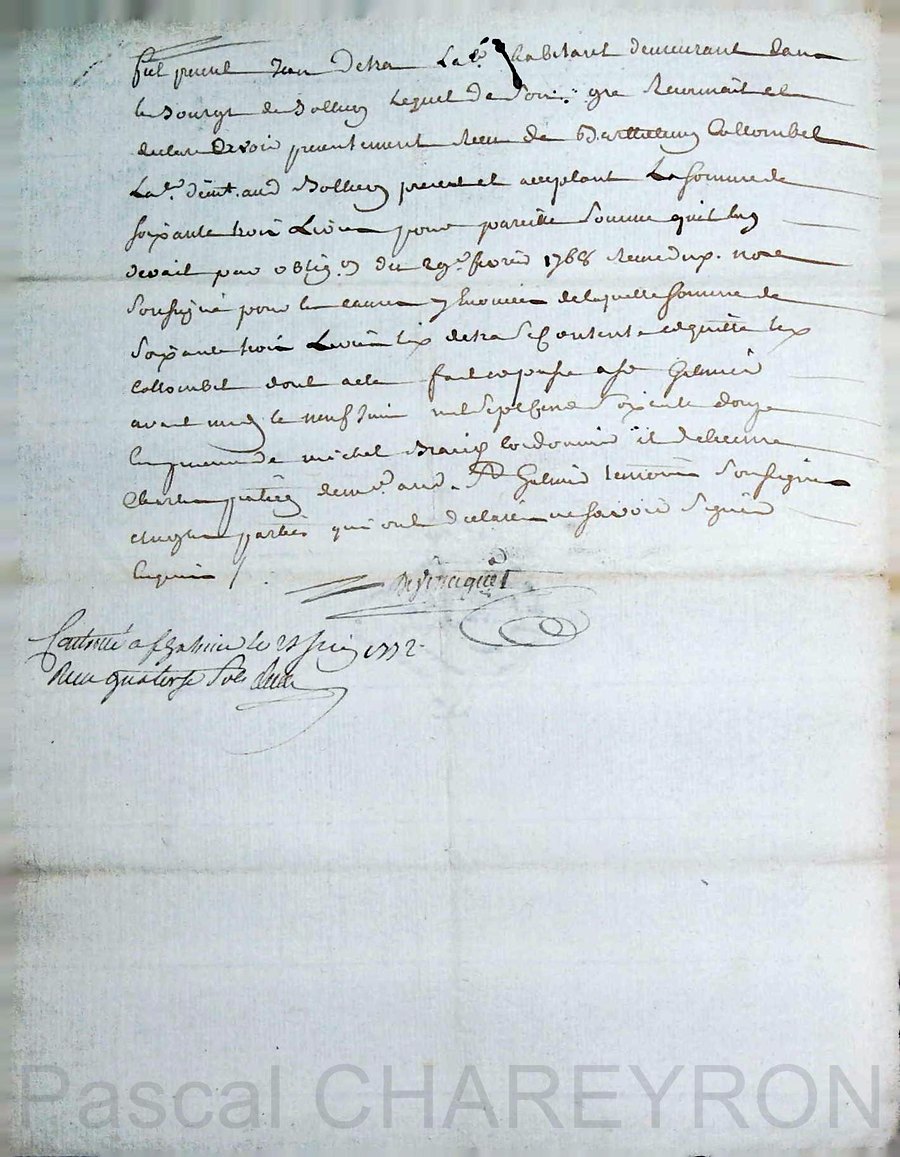 fut present Jean Detra lab.r habitant demeurant dans
le Bourgt de Sollieu Lequel de Son gré Reconnait et
declare avoir presentement Receu de Barthelemy Collombet
Lab.r dem.t aud Sollieu present et acceptant La Somme de
soixante trois Livres pour pareille Somme quil luy
devait par oblig.on du 29.e fevrié 1768 Receue d'eux. not.e
Soussigné pour les causes y enoncées de laquelle Somme de
Soixante trois Livres lix detra se Contente et quitte lex
Collombet dont acte fait et passé a St Galmié
avant midy le neuf Juin mil Sept Cens Soixante douze
En presence de michel cordonnié et de
Charles dem.t aud. St Galmié temoins Soussignés
et non les parties qui ont declaré ne Savoir Signér
Enquis /.

Controllé a St Galmier le 21 Juin 1772
Receu quatorze Sols
Pascal CHAREYRON